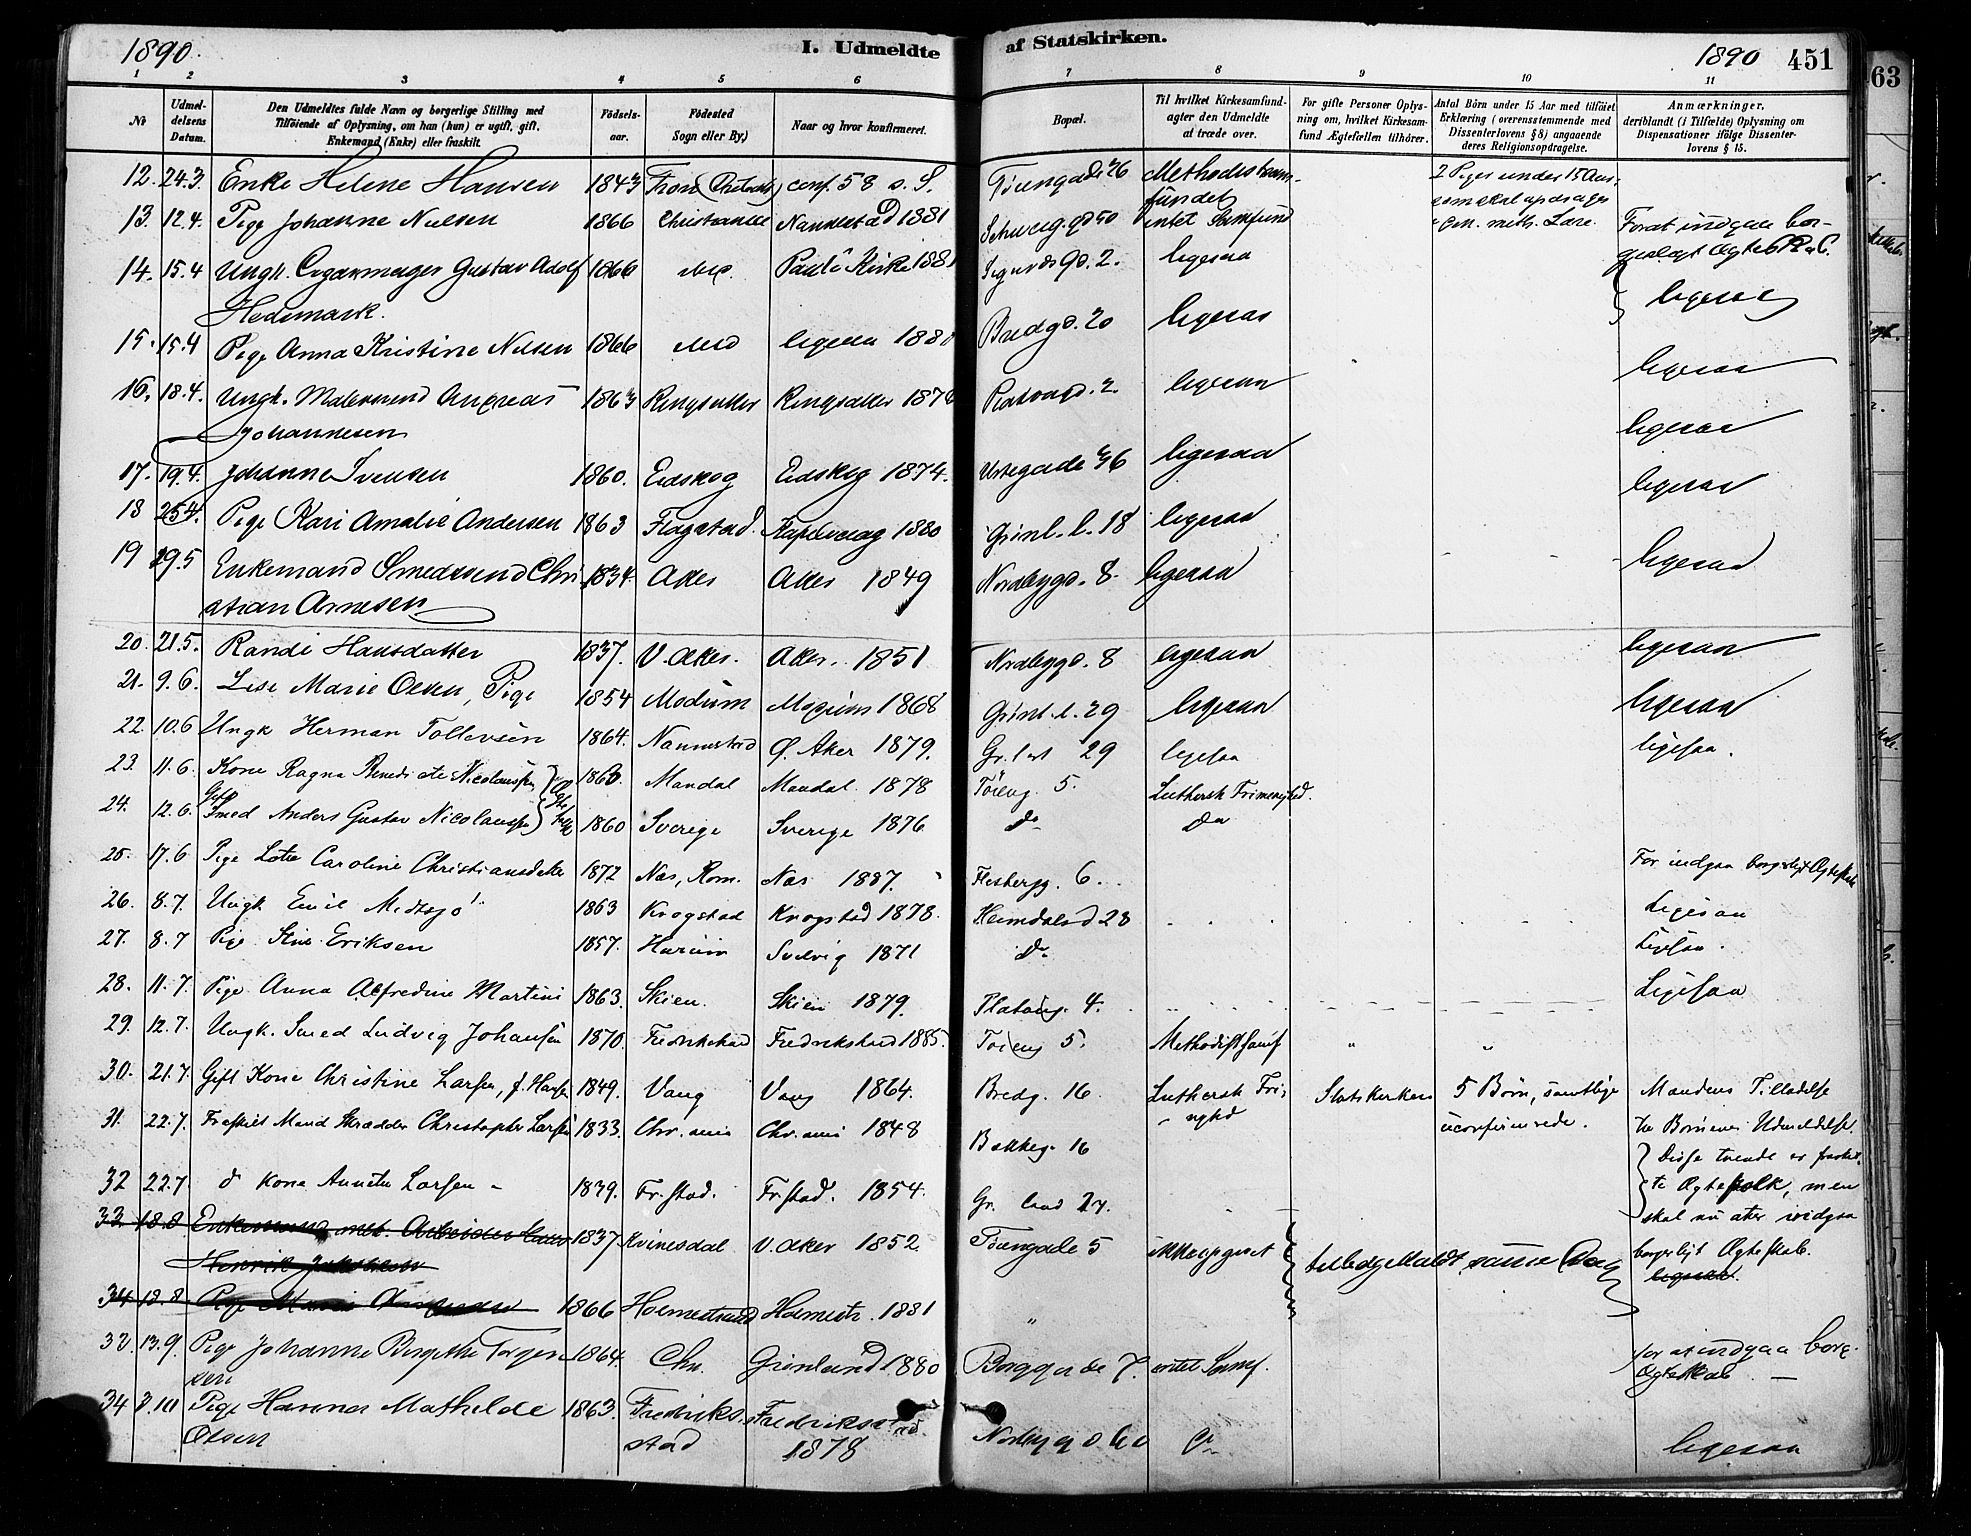 1890.
I. Udmeldte af Statskirken.
1890 451
63
1 2 3 4 5 6 7 8 9 10 11
No
Udmeldelsens Datum.
Den Udmeldtes fulde Navn og borgerlige Stilling med Tilföiende af Oplysning, om han (hun) er ugift, gift, Enkemand (Enke) eller fraskilt.
Födselsaar.
Födested Sogn eller By)
Naar og hvor konfirmeret.
Bopæl.
Til hvilket Kirkesamfund agter den Udmeldte at træde over.
For gifte Personer Oplysning om, hvilket Kirkesamfund Ægtefællen tilhörer.
Antal Börn under 15 Aar med tilföiet Erklæring (overensstemmende med Dissenterlovens § 8) angaaende deres Religionsopdragelse.
Anmærkninger, deriblandt (i Tilfælde) Oplysning om Dispensationer ifölge Dissenterlovens § 15.
12. 24.3. Enke Helene Hansen 1843 Fron conf. 58 s. S. Töiengade 26 Methodistsamfundet 2 Piger under 15 Aar, som skal opdrages i meth. Lære
13. 12.4. Pige Johanne Nielsen 1866 Nannestad 1881 intet Samfund For at indgaa borgerligt Ægtesk.
14. 15.4 Ungk. Cigarmager Gustav Adolf Hedemark. 1866 ibid. Pauls Kirke 1881 Sigurdsgd. 2. ligesaa ligesaa
15. 15.4 Pige Anna Kristine Nilsen 1866 ibid ligesaa 1880 Bredgd. 20 ligesaa
16. 18.4. Ungk. Malersvend Andreas Johannesen 1863 Ringsaker Ringsaker 1878 Platougd. 2. ligesaa ligesaa
17. 19.4. Johanne Svensen 1860. Eidskog Eidskog 1874. Urtegade 36 ligesaa ligesaa
18 25.4. Pige Kari Amalie Andersen 1863 Flagstad 1880 Grönl. l. 18 ligesaa ligesaa
19 19.5 Enkemand Smedsvend Christian Arnesen 1834. Aker Aker 1849 Nordbygd. 8. ligesaa ligesaa
20. 21.5. Randi Hansdatter 1837. V. Aker. Aker. 1851 Nordbygd. 8 ligesaa ligesaa
21. 9.6. Lise Marie Olsen, Pige 1854 Modum Modum 1868 Grönl. l. 29 ligesaa ligesaa
22. 10.6 Ungk Herman Tollevsen 1864. Nannestad Ø. Aker 1879. Gr. lert 29 ligesaa ligesaa.
23. 11.6. Kone Ragna Benedicte Nicolaussen 1860. Mandal Mandal. 1878 Töieng. 5. Luthersk Frimenighed.
24. 12.6. Gift Smed Anders Gustav Nicolaussen 1860 Sverige Sverige 1876 do do
25. 17.6 Pige Lotte Caroline Christiansdatter 1872 Næs, Rom. Næs 1887. Flesbergg. 6. For indgaa borgerligt Ægteskab
26. 8.7. Ungk Emil Midtsjö 1863 Krogstad Krogstad 1878. Heimdalsgd 28 Ligesaa
27. 8.7 Pige Stine Eriksen 1857. Hurum Svelvig 1871 do Ligesaa.
28. 11.7. Pige Anna Alfredine Martini 1863. Skien. Skien 1879. Platoug. 4. Ligesaa
29. 12.7. Ungk. Smed Ludvig Johansen 1870. Fredrikstad Fredrikstad 1885. Töieng 5. Methodistsamf " "
30. 21.7. Gift Kone Christine Larsen, f. Hansen 1849. Vang Vang 1864. Bredg. 16. Luthersk Frimenighed Statskirken 5 Børn, samtlige uconfirmerede. Mandens Tilladelse til Børnenes Udmeldelse.
31. 22.7. Fraskilt Mand Skrædder Christopher Larsen 1833. Chr.ania Chr.ania 1848 Bakkeg. 16 Disse tvende er fraskilte Ægtefolk, men skal nu atter indgaa borgerligt Ægteskab.
32 22.7. do Kone Annette Larsen 1839. Fr.stad. Fr.stad. 1854. Gr. land 27.
33 18.8 Enkemand Arbeider Henrik 1837 Kvinesdal V. Aker 1852. Töiengade 5 ikke opgivet tilbagemeldt samme Dag ligesaa.
34 18.8 Pige 1866 Holmestrand Holmestr. 1881 "
33 13.9. Pige Johanne Birgithe Torgersen 1864. Chr. Grönland 1880 Borggade 7. intet Samf. for at indgaa borg. Ægteskab
34 3.10 Pige Hanna Mathilde Olsen 1863. Fredrikstad Fredrikstad 1878 do ligesaa